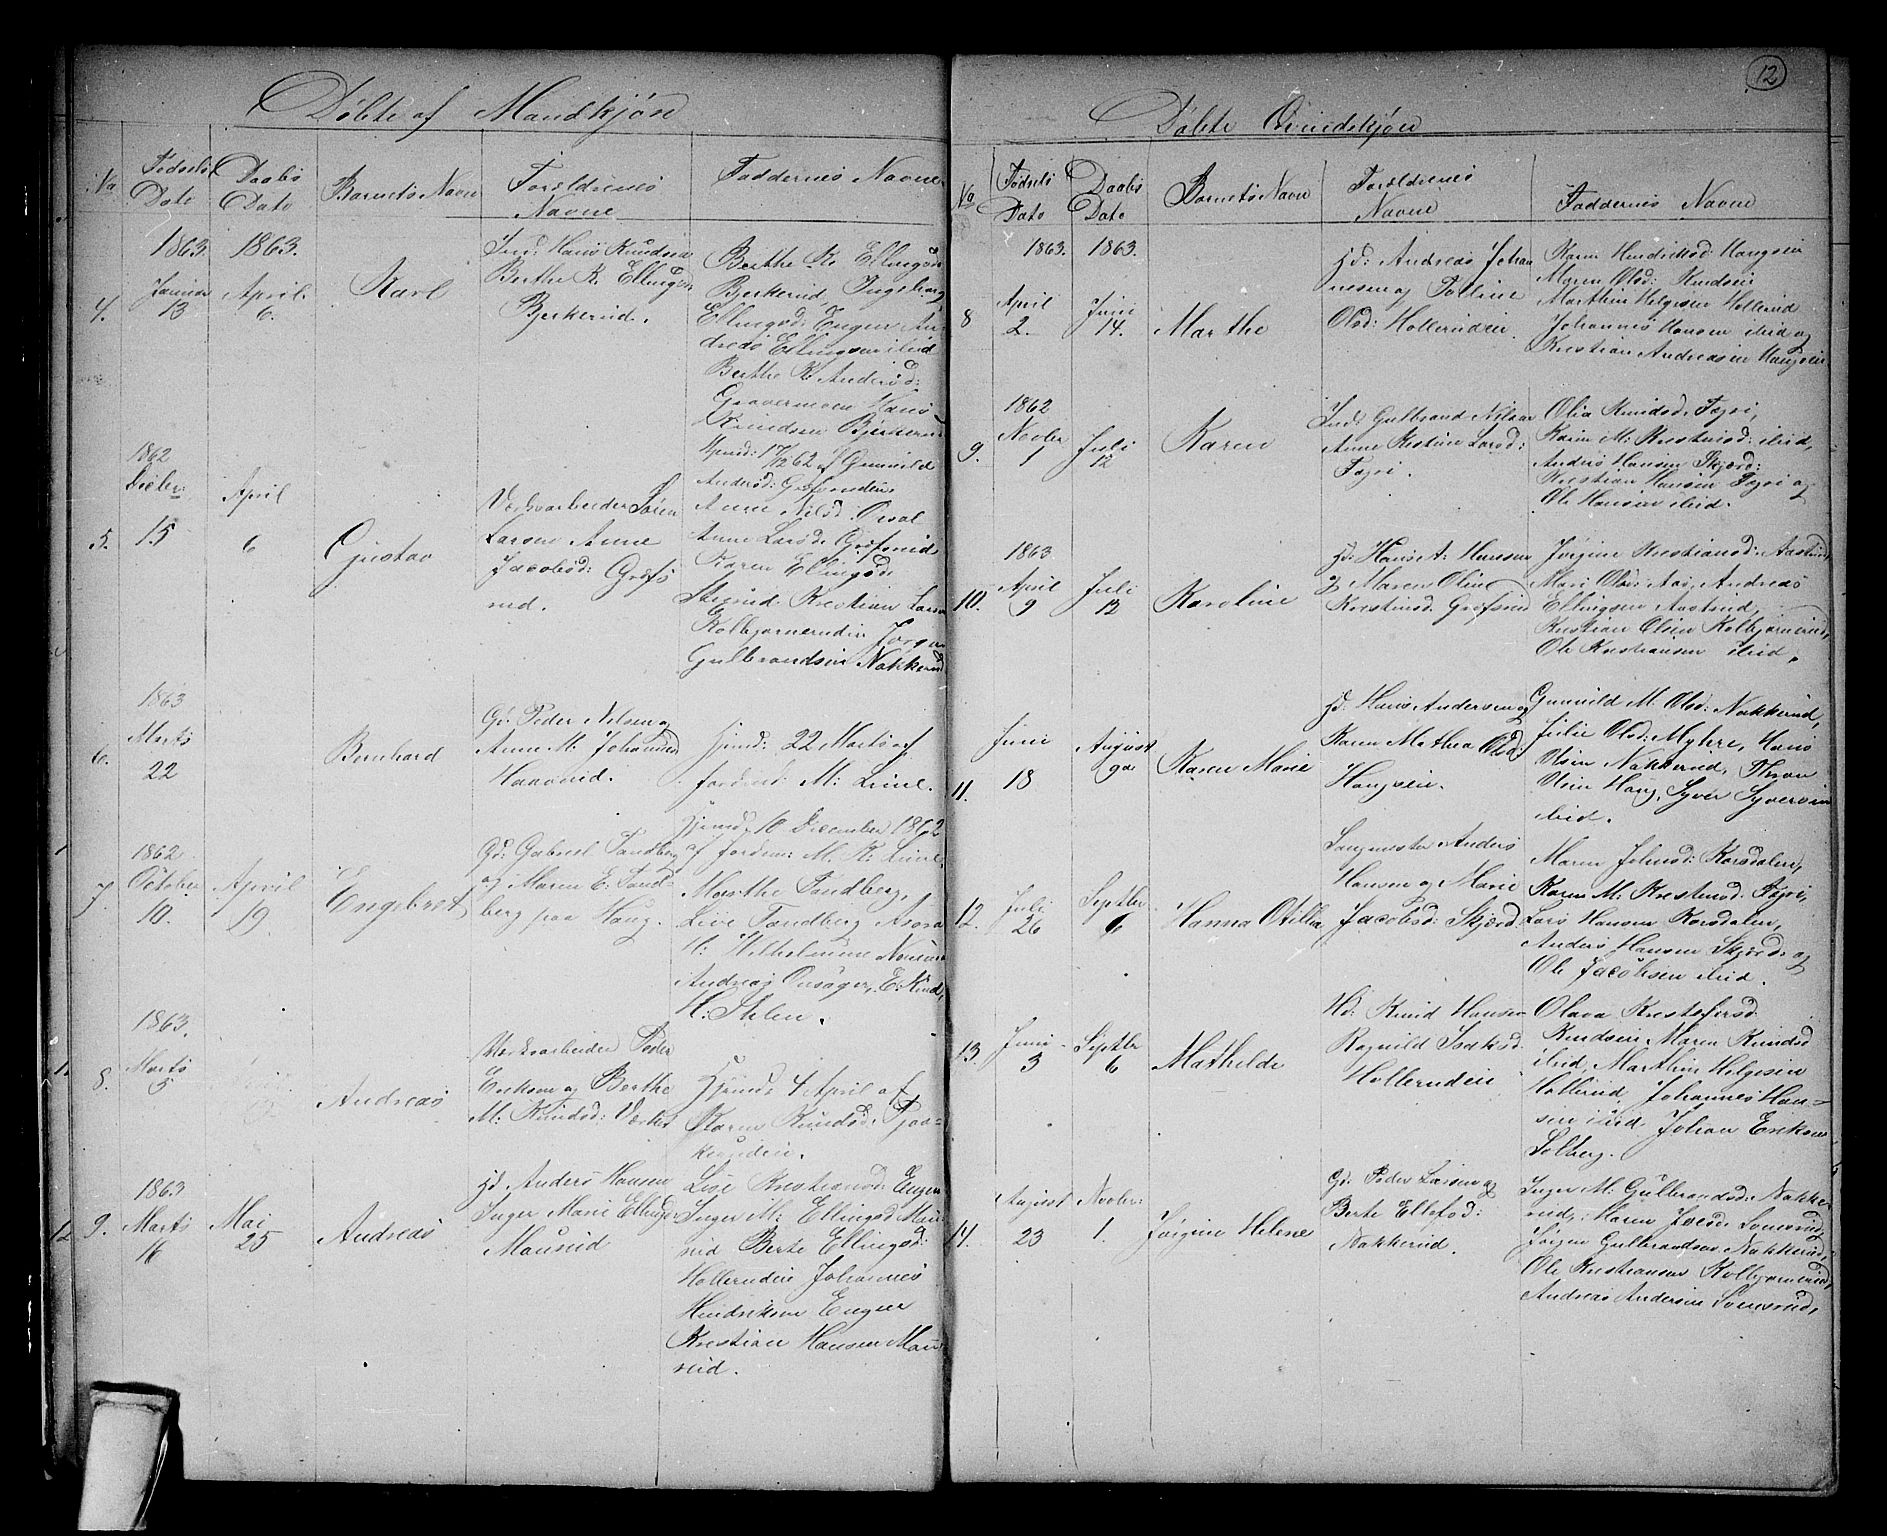 12
Døbte af Mandkjøn
No
Fødsels Date
Daabs Dato
Barnets Navn
Forældrenes Navne
Faddernes Navne
1863 1863.
4.
Januar 13
April 6.
Karl
Ind: Hans Knudsen
Berthe K. Ellingsd
Bjerkerud.
Berthe K. Ellingsd
Bjerkerud, Ingeborg
Ellingsd: Engen An-
dreas Ellingsen ibid
Berthe K. Andersd:
Gravermoen Hans
Knudsen Bjerkerud
5.
1862
Decbr:
15
April
6
Gustav
Værksarbeider Søren
Larsen Anne
Jacobsd: Grøfs
rud.
Hjemd: 17/12 62 af Gunnild
Andersd: Grøfsrudeie
Anne Nilsd:
Anne Larsd: Grøfsrud
Karen Ellingsd:
Kristian Larsen
Kolbjørnerudeie Jørgen
Gulbrandsen Nakkerud
6.
1863
Marts
22
Bernhard
Gd: Peder Nilsen og
Anne M. Johansen
Haavrud.
Hjemd: 22 Marts af
Jordm: M: Lune.
7.
1862
October
10.
April
19
Engebret
Gd: Gabriel Tandberg
og Maren E. Tand-
berg paa Haug.
Hjemd. 10 December 1862
af Jordm: M. K. Lune,
Marthe Tandberg,
Live Tandberg
H: Wilhelmine
Andreas Onsager, E. Rud,
H: Ihlen.
8.
1863.
Marts
5
Andreas
Værksarbeider Peder
Eriksen og Berthe
M: Knudsd: Værket
Hjemd: 4 April af
Karen Knudsd: Tjoa-
krudeie.
9.
1863
Marts
16
Mai
25
Andreas
Hd. Anders Hansen
Inger Marie Ellingsd
Mourud
Lise Kristiansd: Engen
Inger M: Ellingsd: Mou-
rud Berte Ellingsd:
Hollerudeie Johannes
Hendriksen Engen
Kristian Hansen Mou-
rud.
Døbte Qvindekjøn
No
Fødsels Dato
Daabs Dato
Barnets Navn
Forældrenes Navne
Faddernes Navne
1863. 1863.
8
April
2.
Juni
14.
Marthe
Hd: Andreas Johan
nesen og Pauline
Olsd: Hollerudeie
Karen Hendriksd: Haugseie
Maren Olsd: Rudseie
Marthin Helgesen Hollerud
Johannes Hansen ibid og
Kristian Andreasen Haugseie
9.
1862
Novbr
1
Juli
12
Karen
Ind: Gulbrand Nilsen
Anne Kristine Larsd:
Fegri.
Olia Knudsd. Fegri,
Karen M: Kristensd: ibid,
Anders Hansen Skjærd:
Kristian Hansen Fegri og
Ole Hansen ibid.
10.
1863
April
9
Juli
12
Karoline
Hd: Hans A: Hansen
og Maren Oline
Kristensd. Grøfsrud
Jørgine Kristiansd: Aasterud,
Mari Olsd: Aas, Andreas
Ellingsen Aasterud,
Kristian Olsen Kolbjørnerud,
Ole Kristiansen ibid.
11.
Juni
18
August
9de
Karen Marie
Hd. Hans Andersen og
Karen Mathea Olsd:
Haugseie.
Gunnild M. Olsd: Nakkerud,
Julie Olsd: Myhre, Hans
Olsen Nakkerud, Thron
Olsen Haug, Syver Syversen
ibid.
12.
Juli
26
Septbr
6
Hanna Otilia
Sangmester Anders
Hansen og Marie
Jacobsd: Skjærd:
Maren Johnsd: Korsdalen,
Karen M. Kristensd. Fegri,
Lars Hansen Korsdalen,
Anders Hansen Skjærd: og
Ole Jacobsen ibid.
13.
Juni
3
Septbr
6
Mathilde
Hd. Knud Hansen
Ragnild Isaksd.
Hollerudeie
Olava Kristofersd.
Rudseie Maren Knudsd
ibid, Marthin Helgesen
Hollerud, Johannes Han-
sen ibid Johan Eriksen
Solberg.
14.
August
23
Novbr:
1.
Jørgine Helene
Gd: Peder Larsen og
Berte Ellefsd:
Nakkerud.
Inger M: Gulbrandsd: Nakke
rud, Maren Iversd: Somerud,
Jørgen Gulbrandsen Nakkerud,
Ole Kristiansen Kolbjørnerud,
Andreas Andersen Somerud,